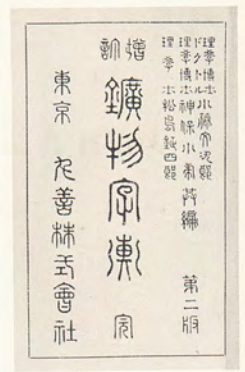 理學博士
ドクトル
小藤文次郎
理學博士神保小虎共編
理學士松島鉦四郎
第二版
增訂
鑛物字彙
完
東京 丸善株式會社